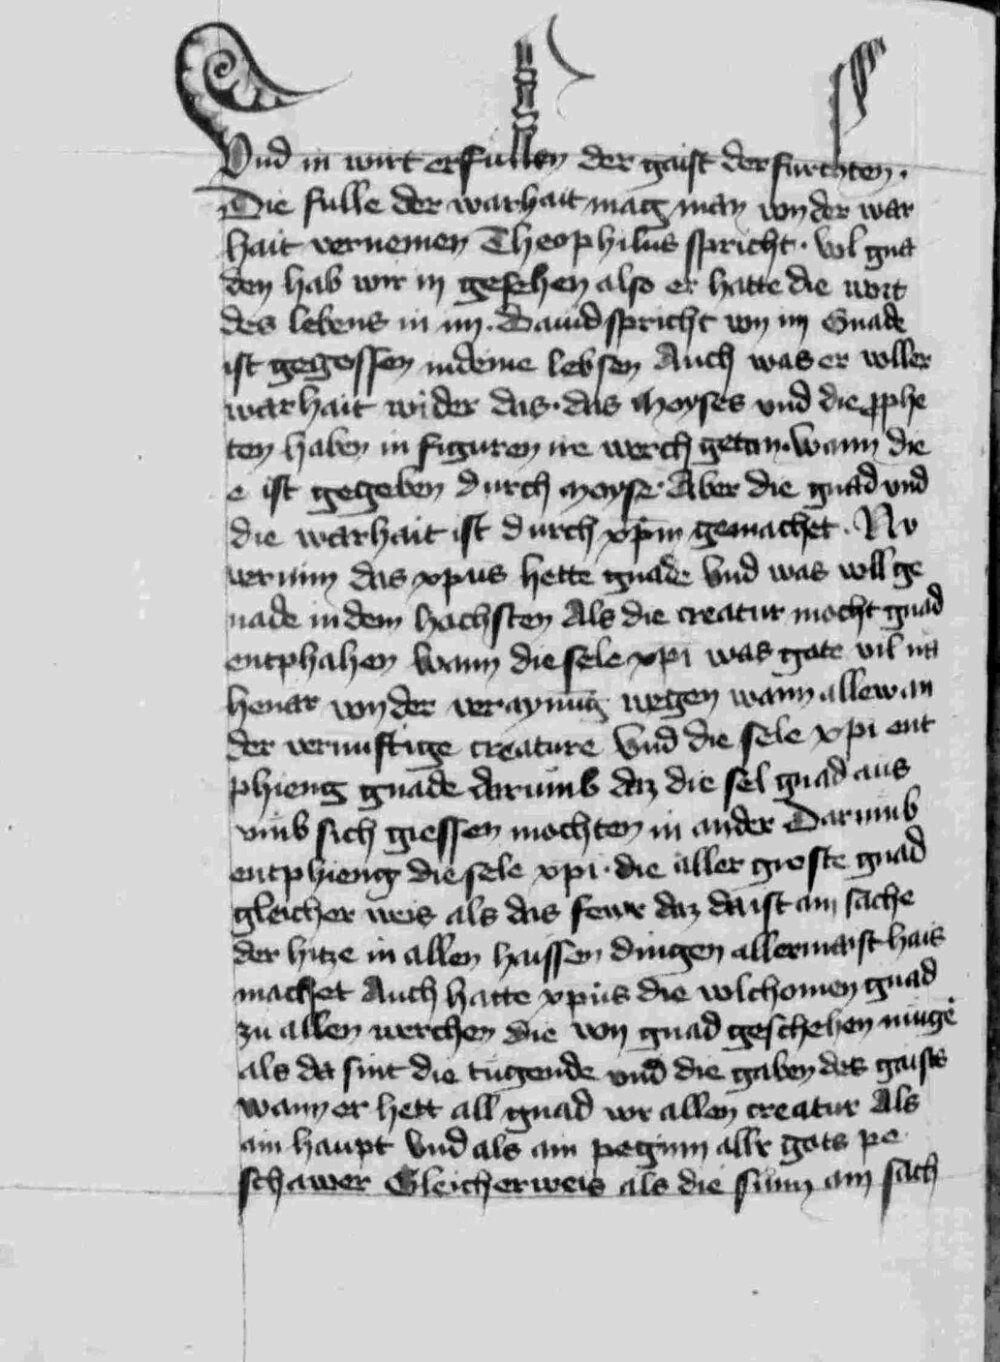 Vnd in wirt erfullen der gaist der furchten.
Die fulle der warhait mag man von der war
hait vernemen Theophilus spricht. vol gna
den hab wir in gesehen also er hatte die wort
des lebens in im. Dauid spricht von im Gnade
ist gegossen in deine lebsen Auch was er voller
warhait wider das. das Moyses vnd die prophe
ten haben in figuren ire werch getan. Wann die
e ist gegeben durch moyse. Aber die gnad vnd
die warhait ist durch xpm gemachet. Nv
vernim das xpus hette gnade Vnd was voll ge
nade in dem hochsten Als die creatur mocht gnad
entphahen Wann die sele xpi was gote vil na
hener von der veraynung wegen wann alle wan
der vernuftige creature Vnd die sele xpi ent
phieng gnade darumb daz die sel gnad aus
vmb sich giessen mochten in ander Darumb
entphieng die sele xpi. die aller groste gnad
gleicher weis als das fewr daz da ist ain sache
der hitze in allen haissen dingen allermaist hais
machet Auch hatte xpus die volchomen gnad
zu allen werchen die von gnad geschehen muge
als da sint die tugende vnd die gaben des gaists
wann er hett all gnad vor allen creatur Als
ain haupt Vnd als ain peginn aller gots pe
schawer Gleicherweis als die sunn ain sach